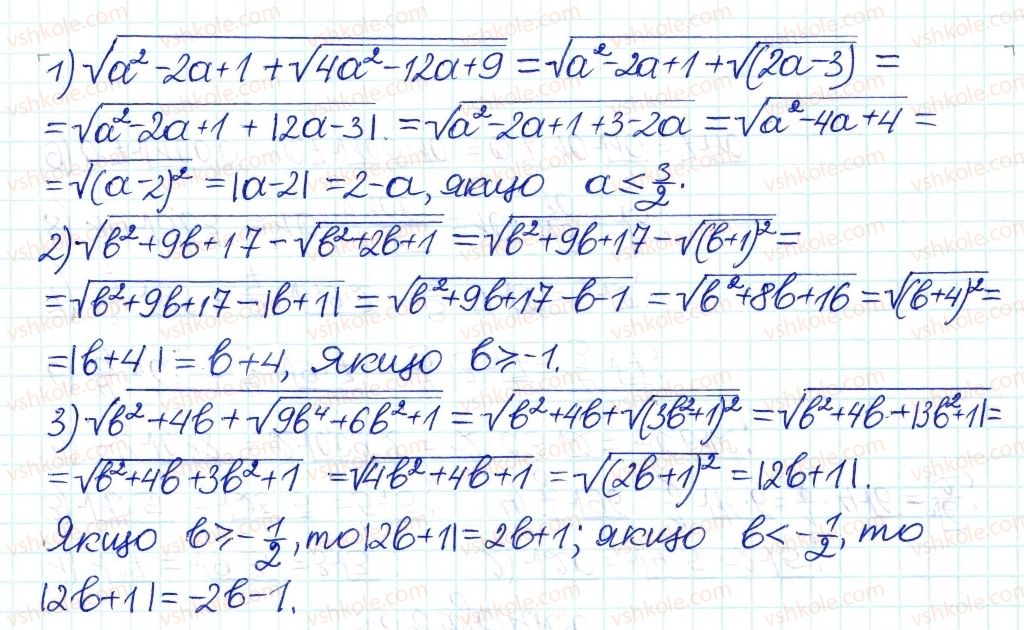 1) √(a² - 2a + 1 + √(4a² - 12a + 9)) = √(a² - 2a + 1 + √((2a - 3))) =
= √(a² - 2a + 1 + |2a - 3|). = √(a² - 2a + 1 + 3 - 2a) = √(a² - 4a + 4) =
= √((a - 2)²) = |a - 2| = 2 - a, якщо a ≤ 3/2.
2) √(b² + 9b + 17 - √(b² + 2b + 1)) = √(b² + 9b + 17 - √((b + 1)²)) =
= √(b² + 9b + 17 - |b + 1|) = √(b² + 9b + 17 - b - 1) = √(b² + 8b + 16) = √((b + 4)²) =
= |b + 4| = b + 4, якщо b ≥ -1.
3) √(b² + 4b + √(9b⁴ + 6b² + 1)) = √(b² + 4b + √((3b² + 1)²)) = √(b² + 4b + |3b² + 1|) =
= √(b² + 4b + 3b² + 1) = √(4b² + 4b + 1) = √((2b + 1)²) = |2b + 1|.
Якщо b ≥ -1/2, то |2b + 1| = 2b + 1; якщо b < -1/2, то
|2b + 1| = -2b - 1.